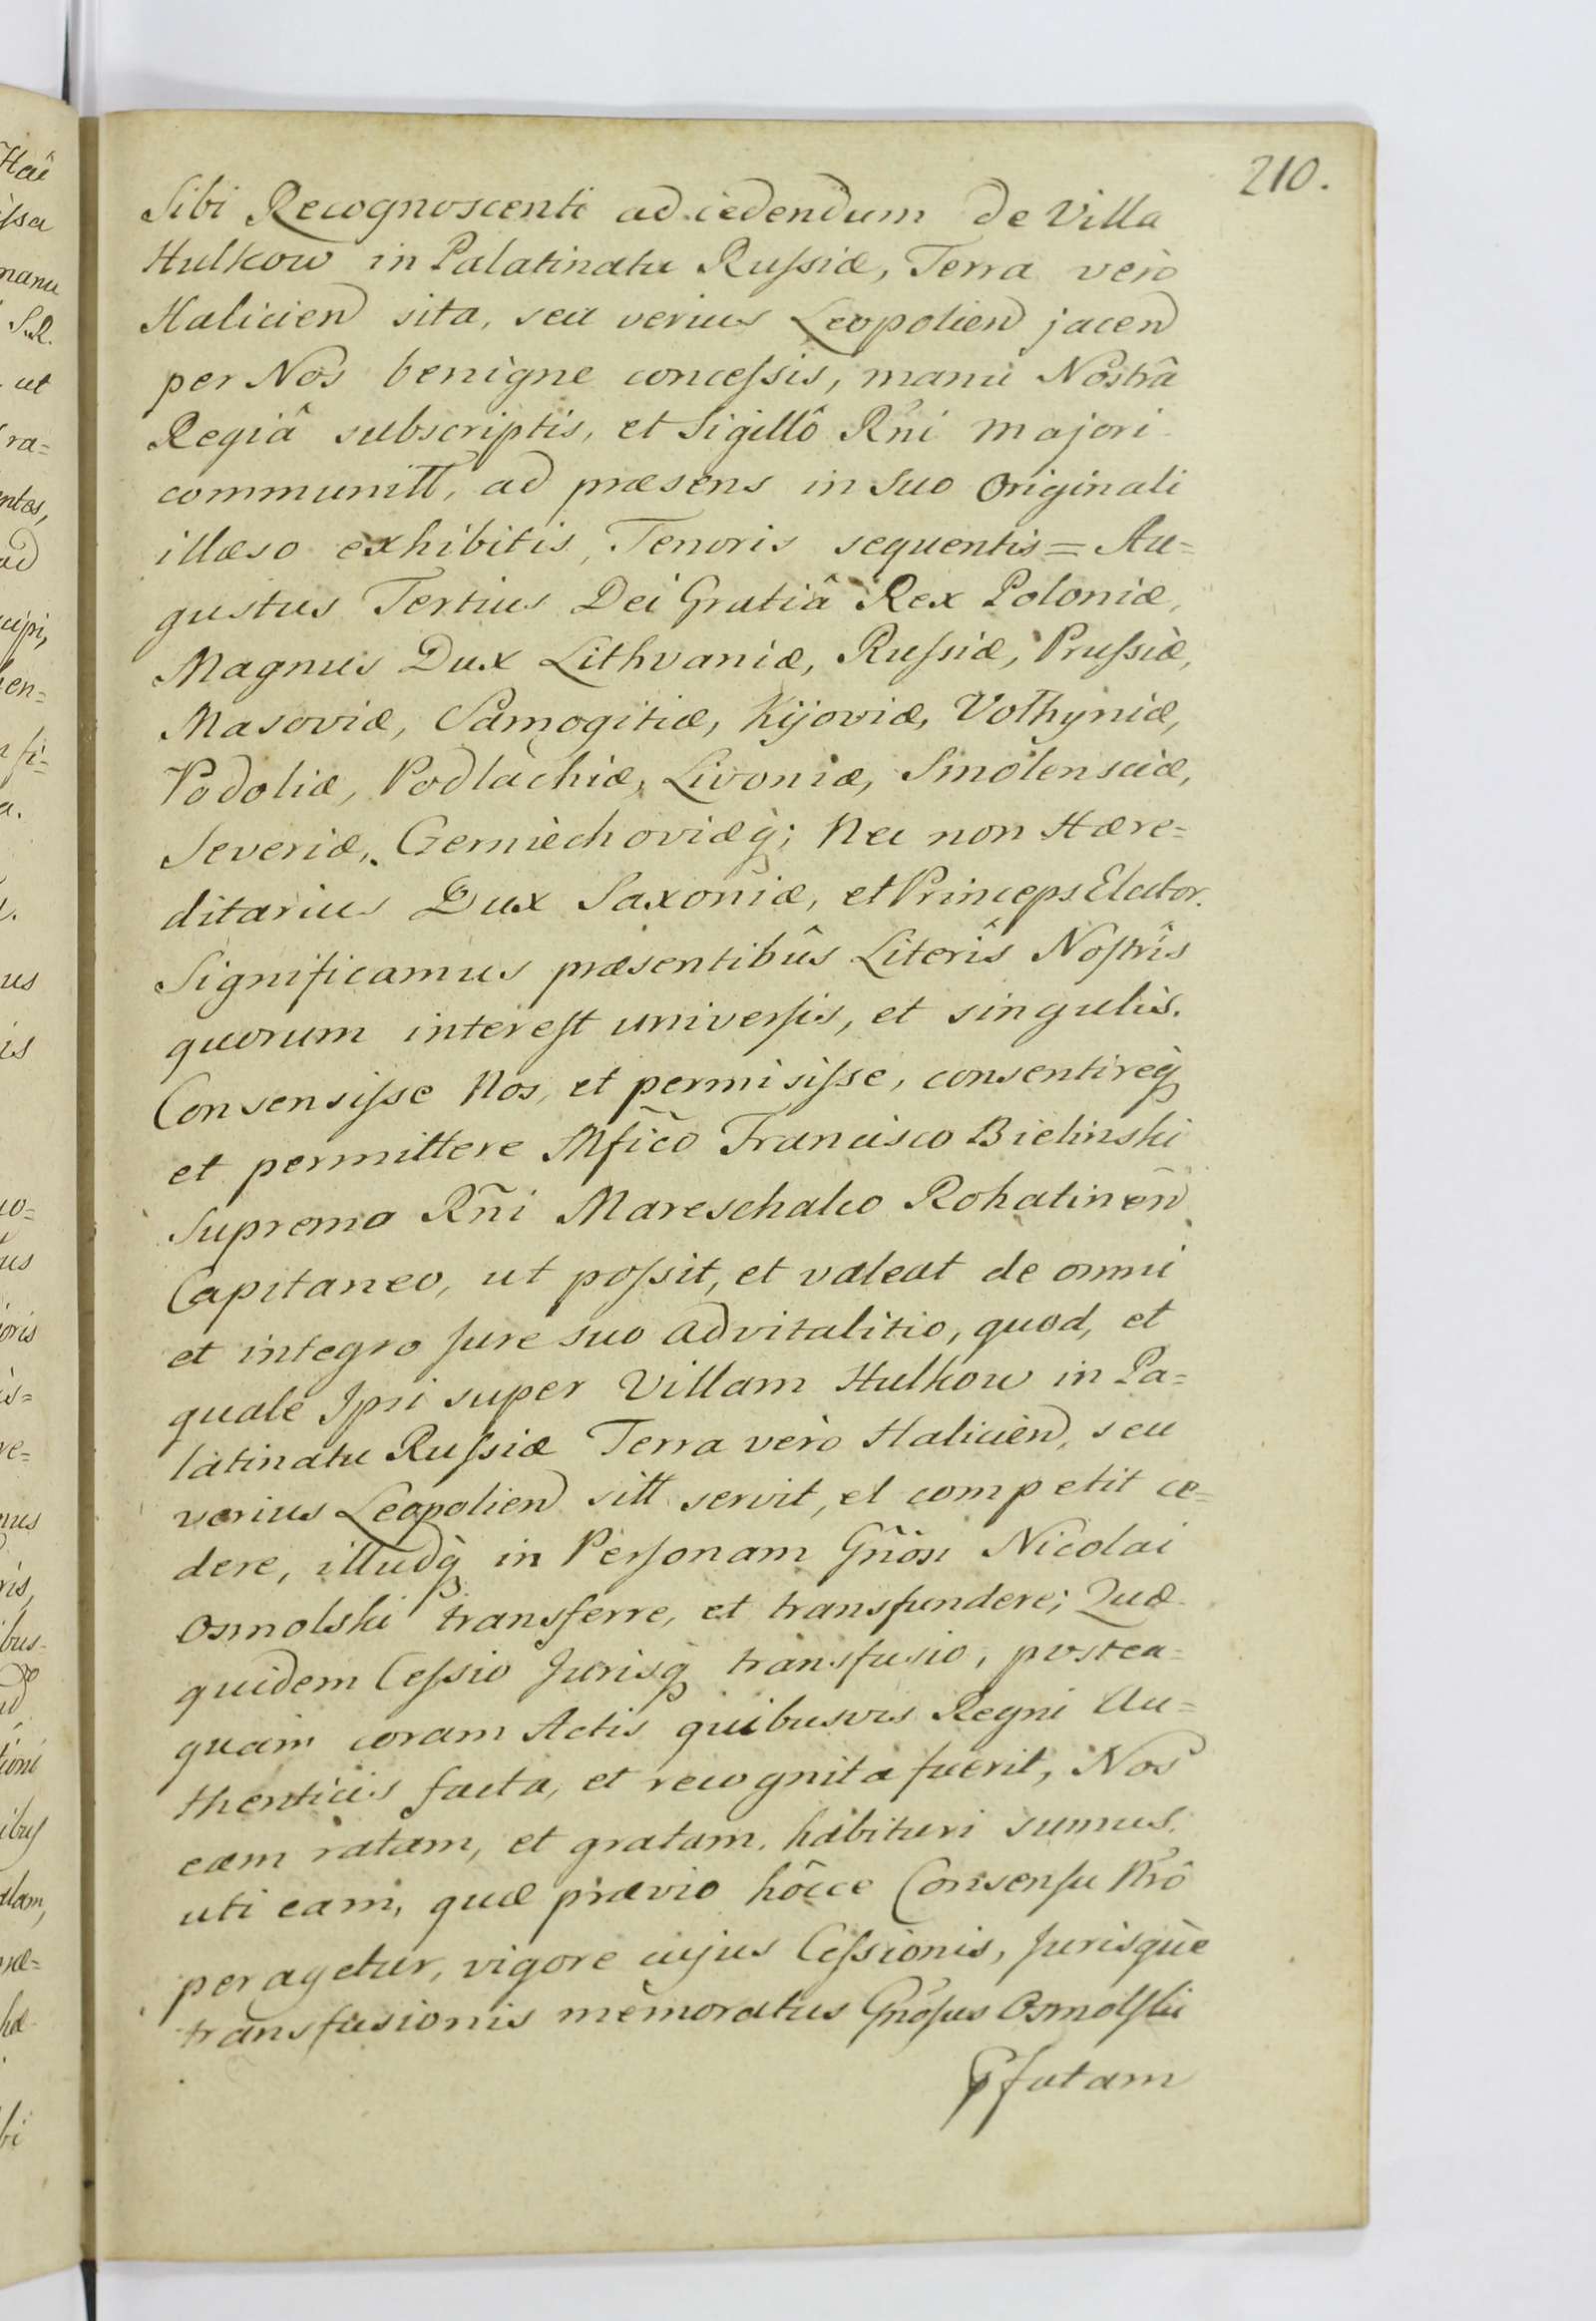 210.
Sibi Recognoscenti ad cedendum de Villa
Hulkow in Palatinatu Rußiæ, Terra verò
Haliciend sita, seu verius Leopoliend jacend
per Nos benigne conceßis, manu Nostrâ
Regiâ subscriptis, et Sigillô Rñi majori
communitt, ad præsens in suo originali
illæso exhibitis, Tenoris sequentis = Au=
gustus Tertius Dei Gratiâ Rex Poloniæ,
Magnus Dux Lithvaniæ, Rußiæ, Prußiæ,
Masoviæ, Samogitiæ, Kijoviæ, Volhyniæ,
Podoliæ, Podlachiæ, Livoniæ, Smolensciæ,
Severiæ, Czerniechoviæq; Nec non Hære=
ditarius Dux Saxoniæ, et Princeps Elector.
Significamus præsentibûs Literîs Noſtrîs
quorum intereſt univerſis, et singulis.
Consensiſse Nos, et permisiſse, consentireq
et permittere Mfico Francisco Bielinski
Supremo Rñi Mareschalco Rohatinen
Capitaneo, ut poſsit, et valeat de omni
et integro Jure suo advitalitio, quod, et
quale Ipsi super Villam Hulkow in Pa=
latinatu Rußiæ Terra verò Haliciend, seu
verius Leopoliend sitt servit, et competit ce=
dere, illudq in Perſonam Gñosi Nicolai
Osmolski transferre, et transfundere; Quæ
quidem Ceſsio Jurisq transfusio, postea=
quam coram Actis quibusvis Regni Au=
thenticis facta, et recognita fuerit, Nos
eam ratam, et gratam habituri sumus.
uti eam, quæ prævio hôcce Consenſu Nrô
peragetur, vigore cujus Ceſsionis, Jurisquè
transfusionis memoratus Gnoſus Osmolſki
Pfatam
Hai
iſsa
manu
S.R.
ut
ra=
ntos,
ad
cipi,
en=
us
is
us
oris
re=
ris,
ibus
ioni
alam,
bi